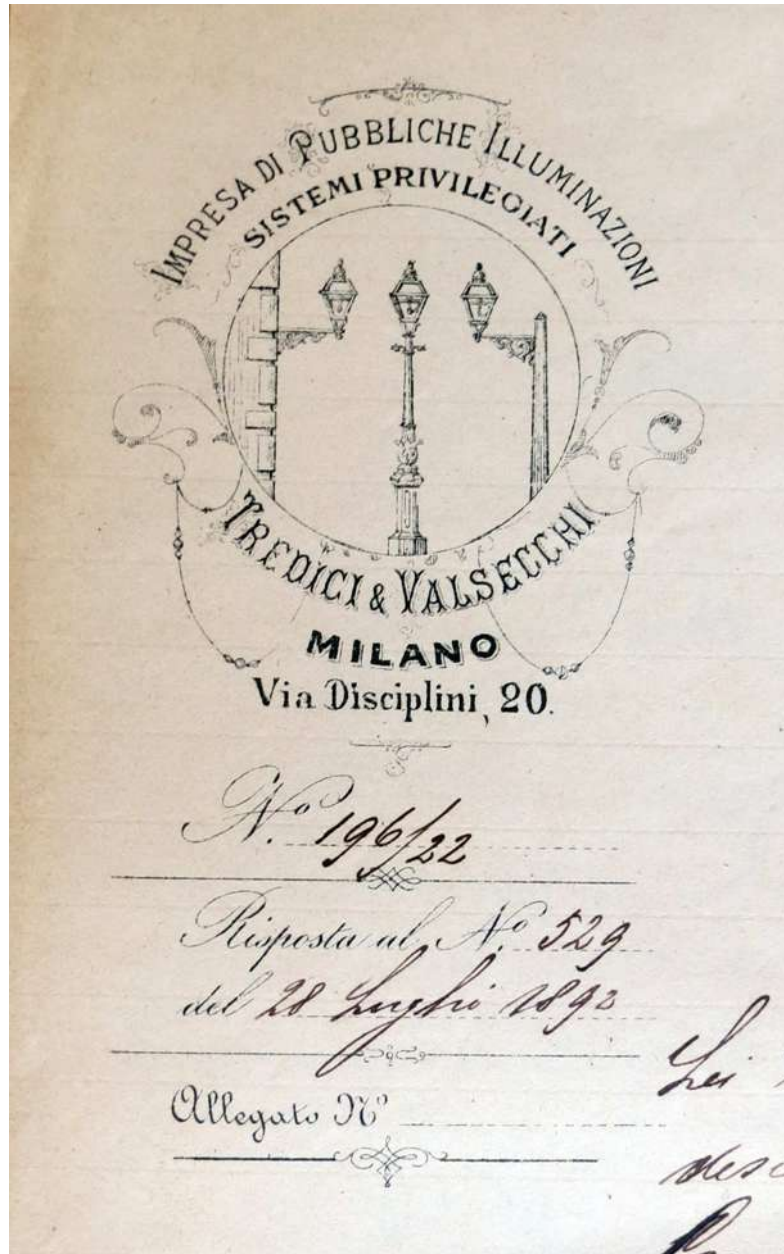 IMPRESA DI PUBBLICHE ILLUMINAZIONI
SISTEMI PRIVILEGIATI
TREDICI & VALSECCHI
MILANO
Via Disciplini, 20.
No. 196/22
Risposta al No 529
del 28 Luglio 1892
Allegato No
Lei